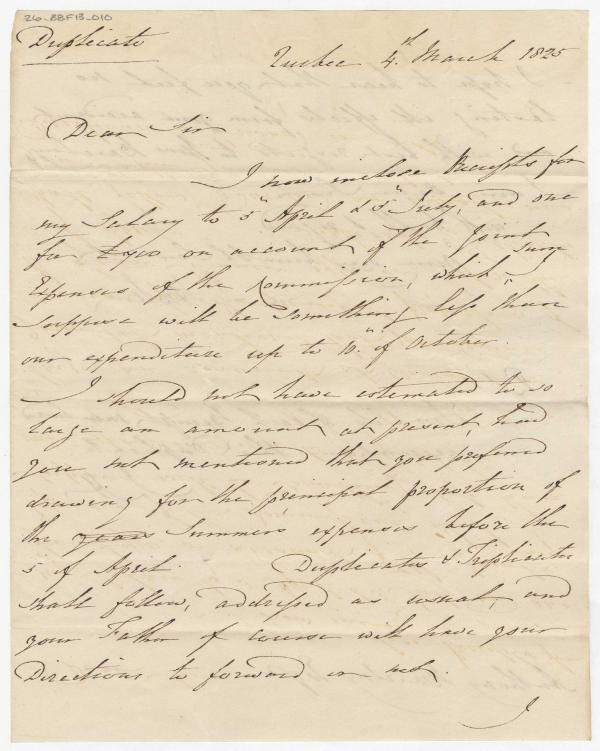 26-BBF13-010
Duplicate
Quebec 4th March 1825
Dear Sir
I now inclose Receipts for
my Salary to 5" April & 5" July, and one
for on account of the Joint
Expenses of the Commission, which sum I
suppose will be something less than
our expenditure up to 10." of October.
I should not have estimated to so
large an amount at present, had
you not mentioned that you prefered
drawing for the principal proportion of
the years Summers expenses before the
5 of April. Duplicates & Triplicates
shall follow, addressed as usual, and
your Father of course will have your
Directions to forward or not.
I